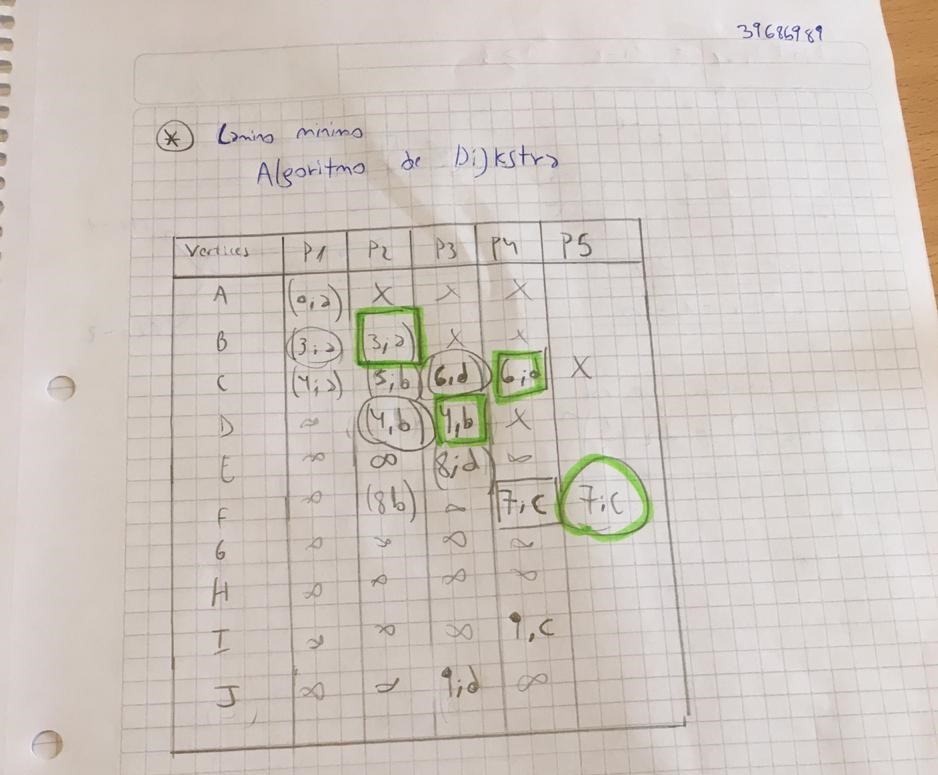 39686989
* Camino minimo
Algoritmo de Dijkstra
Vertices P1 P2 P3 P4 P5
A (0,a) X X X
B (3,a) (3,a) X X
C (4,a) (5,b) (6,d) 6,d X
D ∞ (4,b) 4,b X
E ∞ ∞ (8,d) ∞
F ∞ (8b) ∞ 7,c 7,c
G ∞ ∞ ∞ ∞
H ∞ ∞ ∞ ∞
I ∞ ∞ ∞ 9,c
J ∞ ∞ 9,d ∞